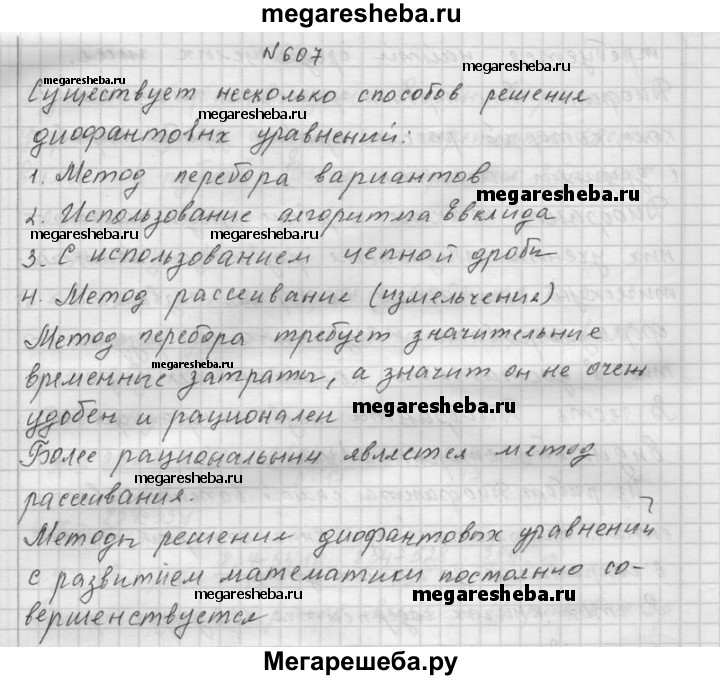 megaresheba.ru
N607
megaresheba.ru
Существует несколько способов решения
megaresheba.ru
диофантовых уравнений:
1. Метод перебора вариантов
megaresheba.ru
2. Использование алгоритма Евклида
megaresheba.ru megaresheba.ru
3. С использованием цепной дроби
4. Метод рассеивание (измельчения)
megaresheba.ru
Метод перебора требует значительние
megaresheba.ru
временные затраты, а значит он не очень
megaresheba.ru
удобен и рационален
Более рациональным является метод
megaresheba.ru
рассеивания.
Методы решения диофантовых уравнений
megaresheba.ru
с развитием математики постоянно со-
megaresheba.ru
вершенствуется
Мегарешеба.ру